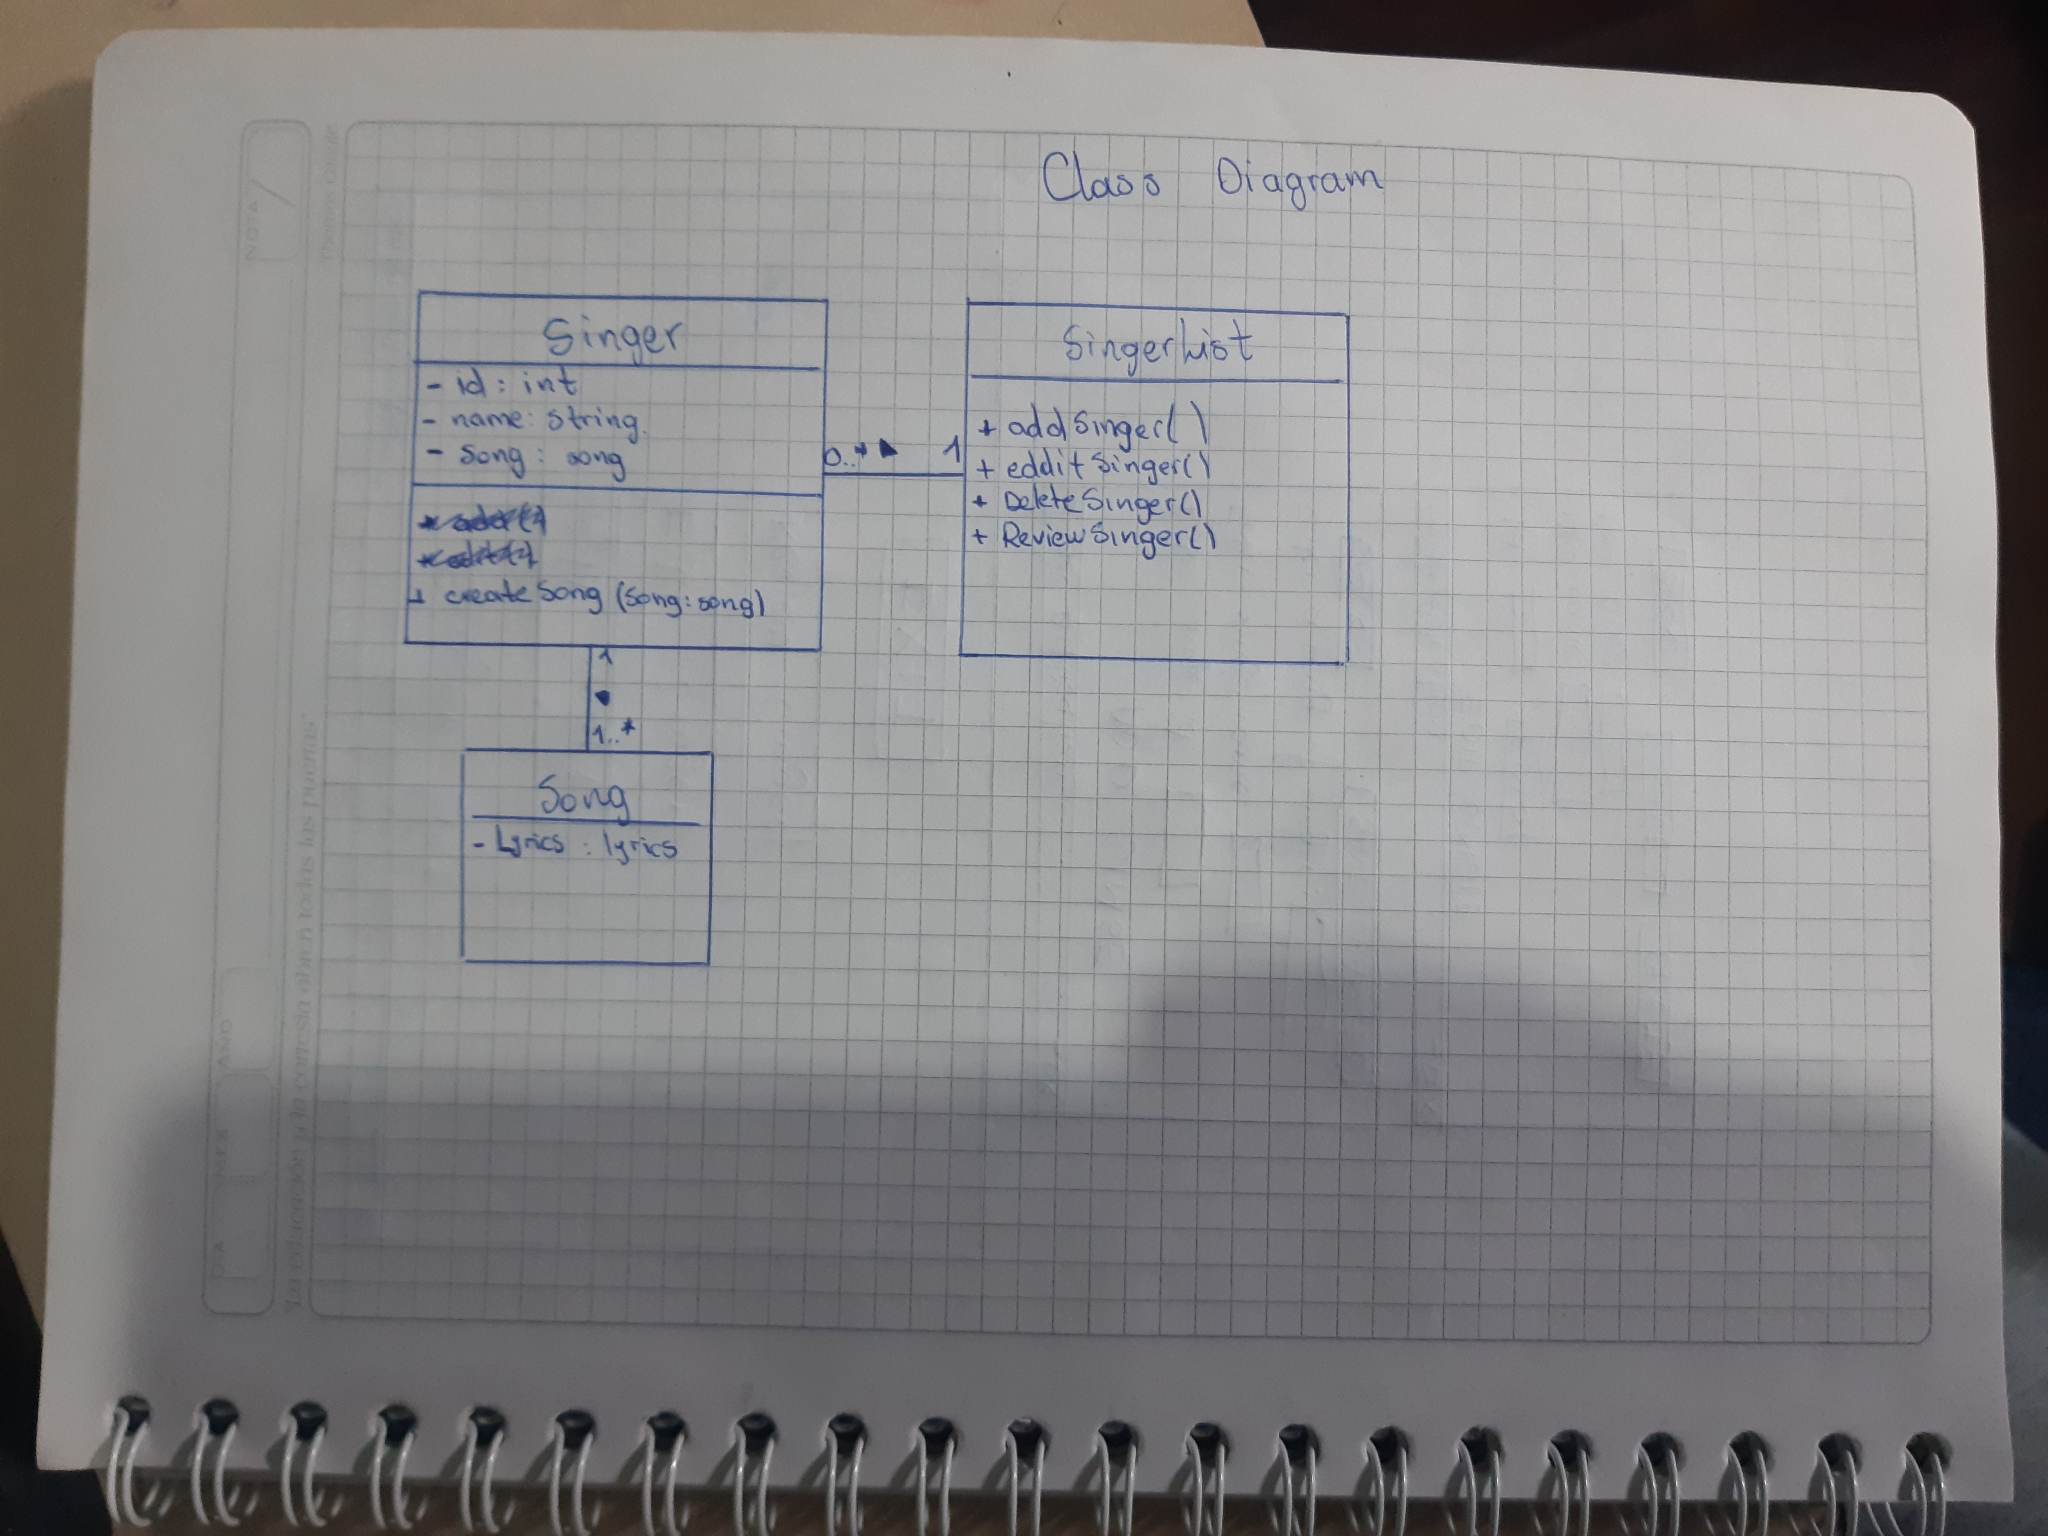 Class Diagram
Singer
- id : int
- name: string.
- Song : song
+ createSong (Song: song)
0..* 1
SingerList
+ addSinger( )
+ edditSinger()
+ DeleteSinger()
+ ReviewSinger()
1
1..*
Song
- Lyrics : lyrics
NOTA
"La educación y la cortesía abren todas las puertas"
DIA
MES
AÑO